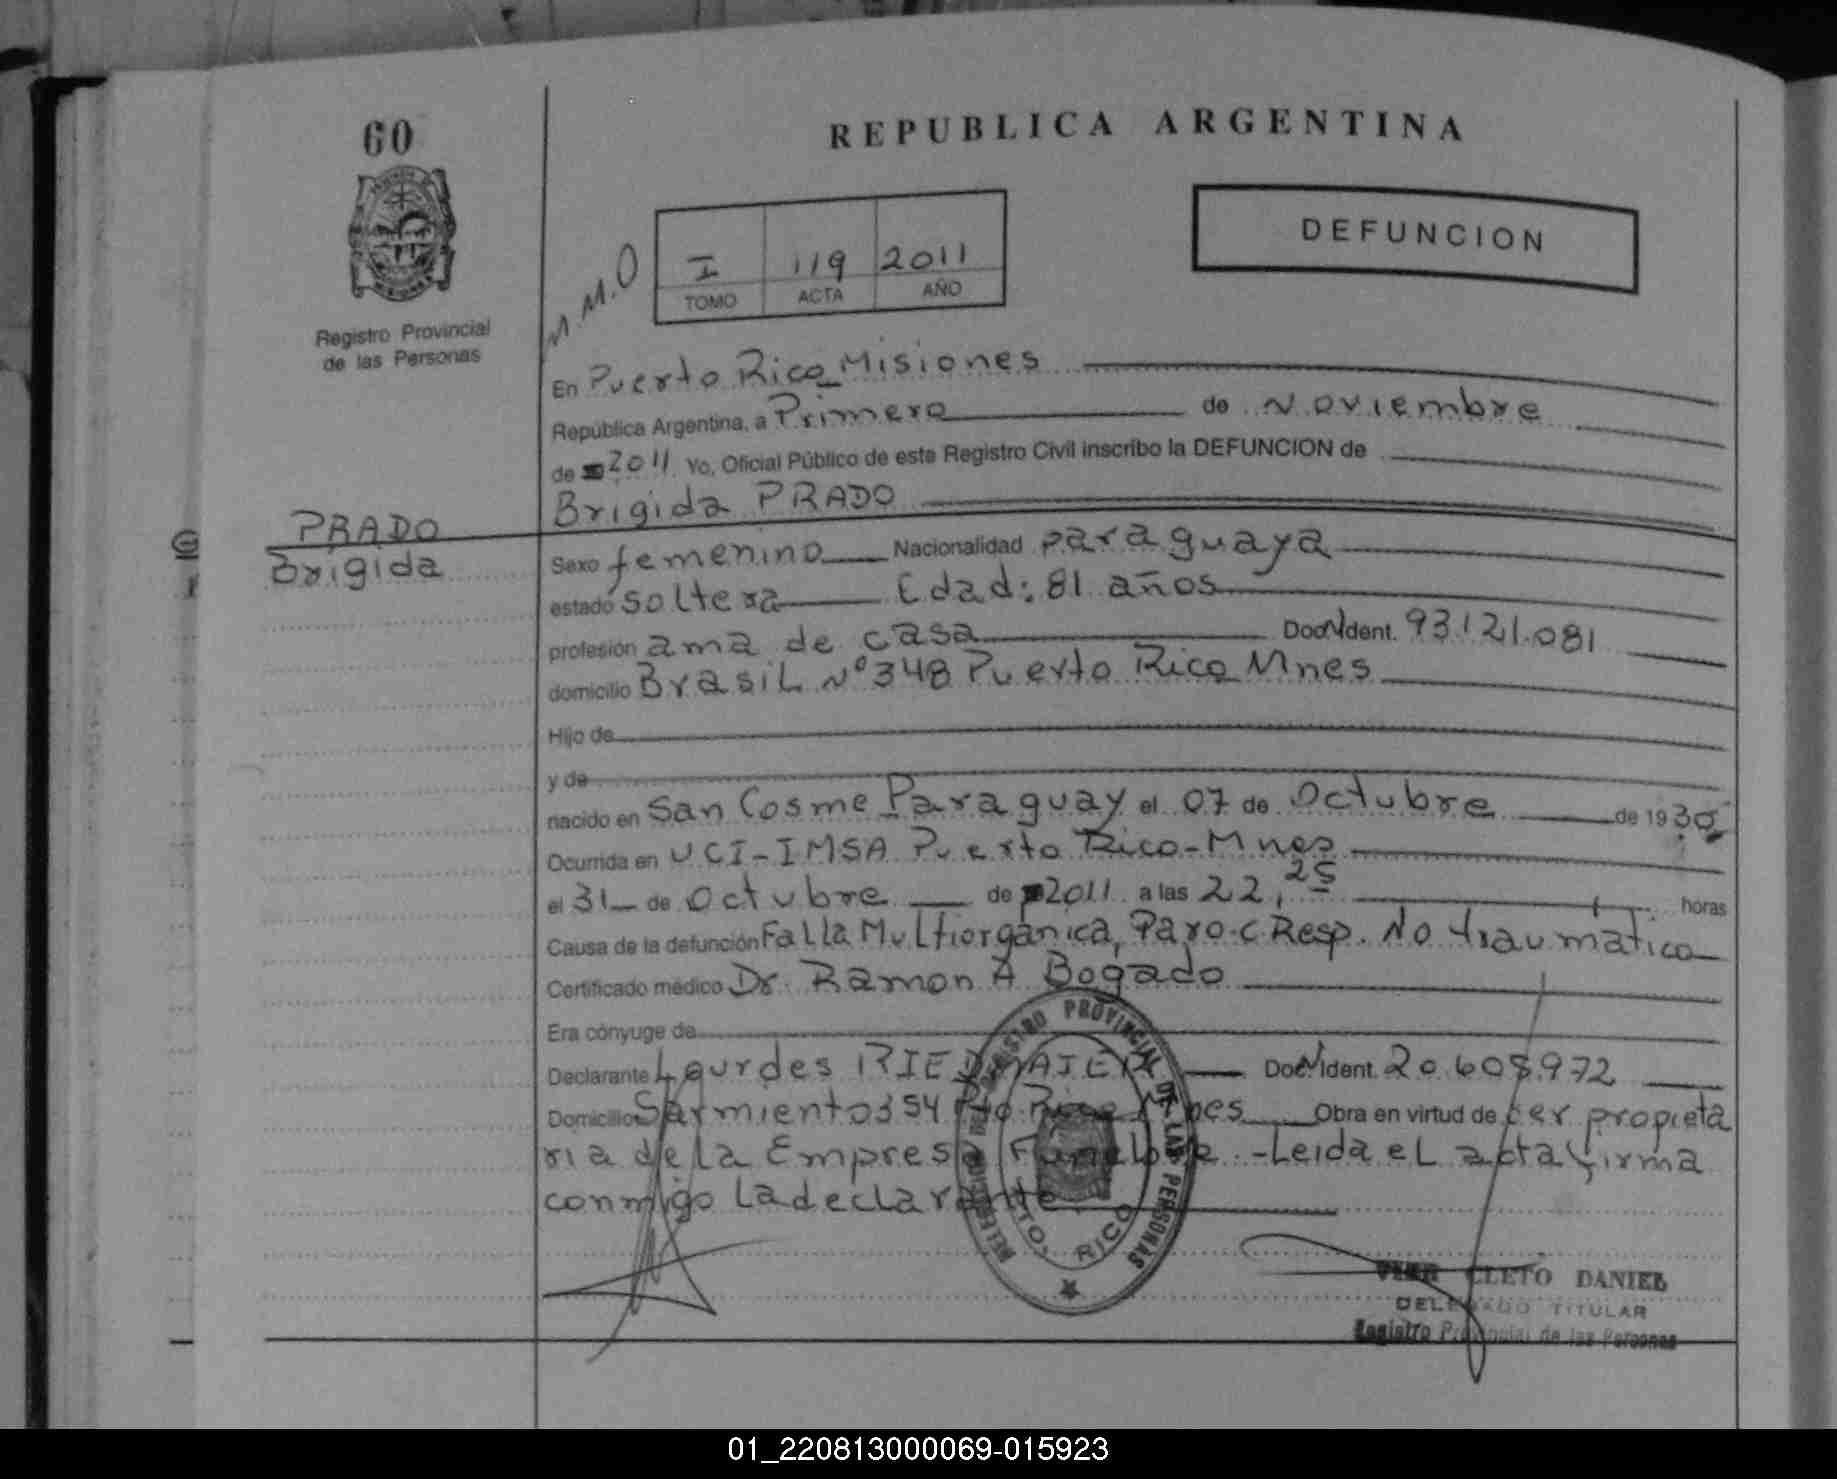 60
REPUBLICA ARGENTINA
DEFUNCION
M.M.O
I 119 2011
TOMO ACTA AÑO
Registro Provincial
de las Personas
En Puerto Rico Misiones
República Argentina, a Primero de Noviembre
de 2011 Yo, Oficial Público de este Registro Civil inscribo la DEFUNCION de
Brigida PRADO
PRADO
Brigida
Sexo femenino Nacionalidad paraguaya
estado soltera Edad: 81 años
profesión ama de casa Doc. N Ident. 93.121.081
domicilio Brasil Nº 348 Puerto Rico Mnes
Hijo de
y de
nacido en San Cosme Paraguay el 07 de Octubre de 1930
Ocurrida en UCI-IMSA Puerto Rico-Mnes
el 31 de Octubre de 2011 a las 22,25 horas
Causa de la defunción Falla Multiorgánica, Paro C Resp. No traumático
Certificado médico Dr. Ramon A Bogado
Era cónyuge de
Declarante Lourdes RIEDMAIER Doc. N Ident. 20.608.972
Domicilio Sarmiento 354 Pto Rico Mnes Obra en virtud de ser propieta
ria de la Empresa Funebre - Leida el acta firma
conmigo la declarante
DELEGACION DEL REGISTRO PROVINCIAL DE LAS PERSONAS
PTO. RICO
CLETO DANIEL
DELEGADO TITULAR
Registro Provincial de las Personas
01_220813000069-015923